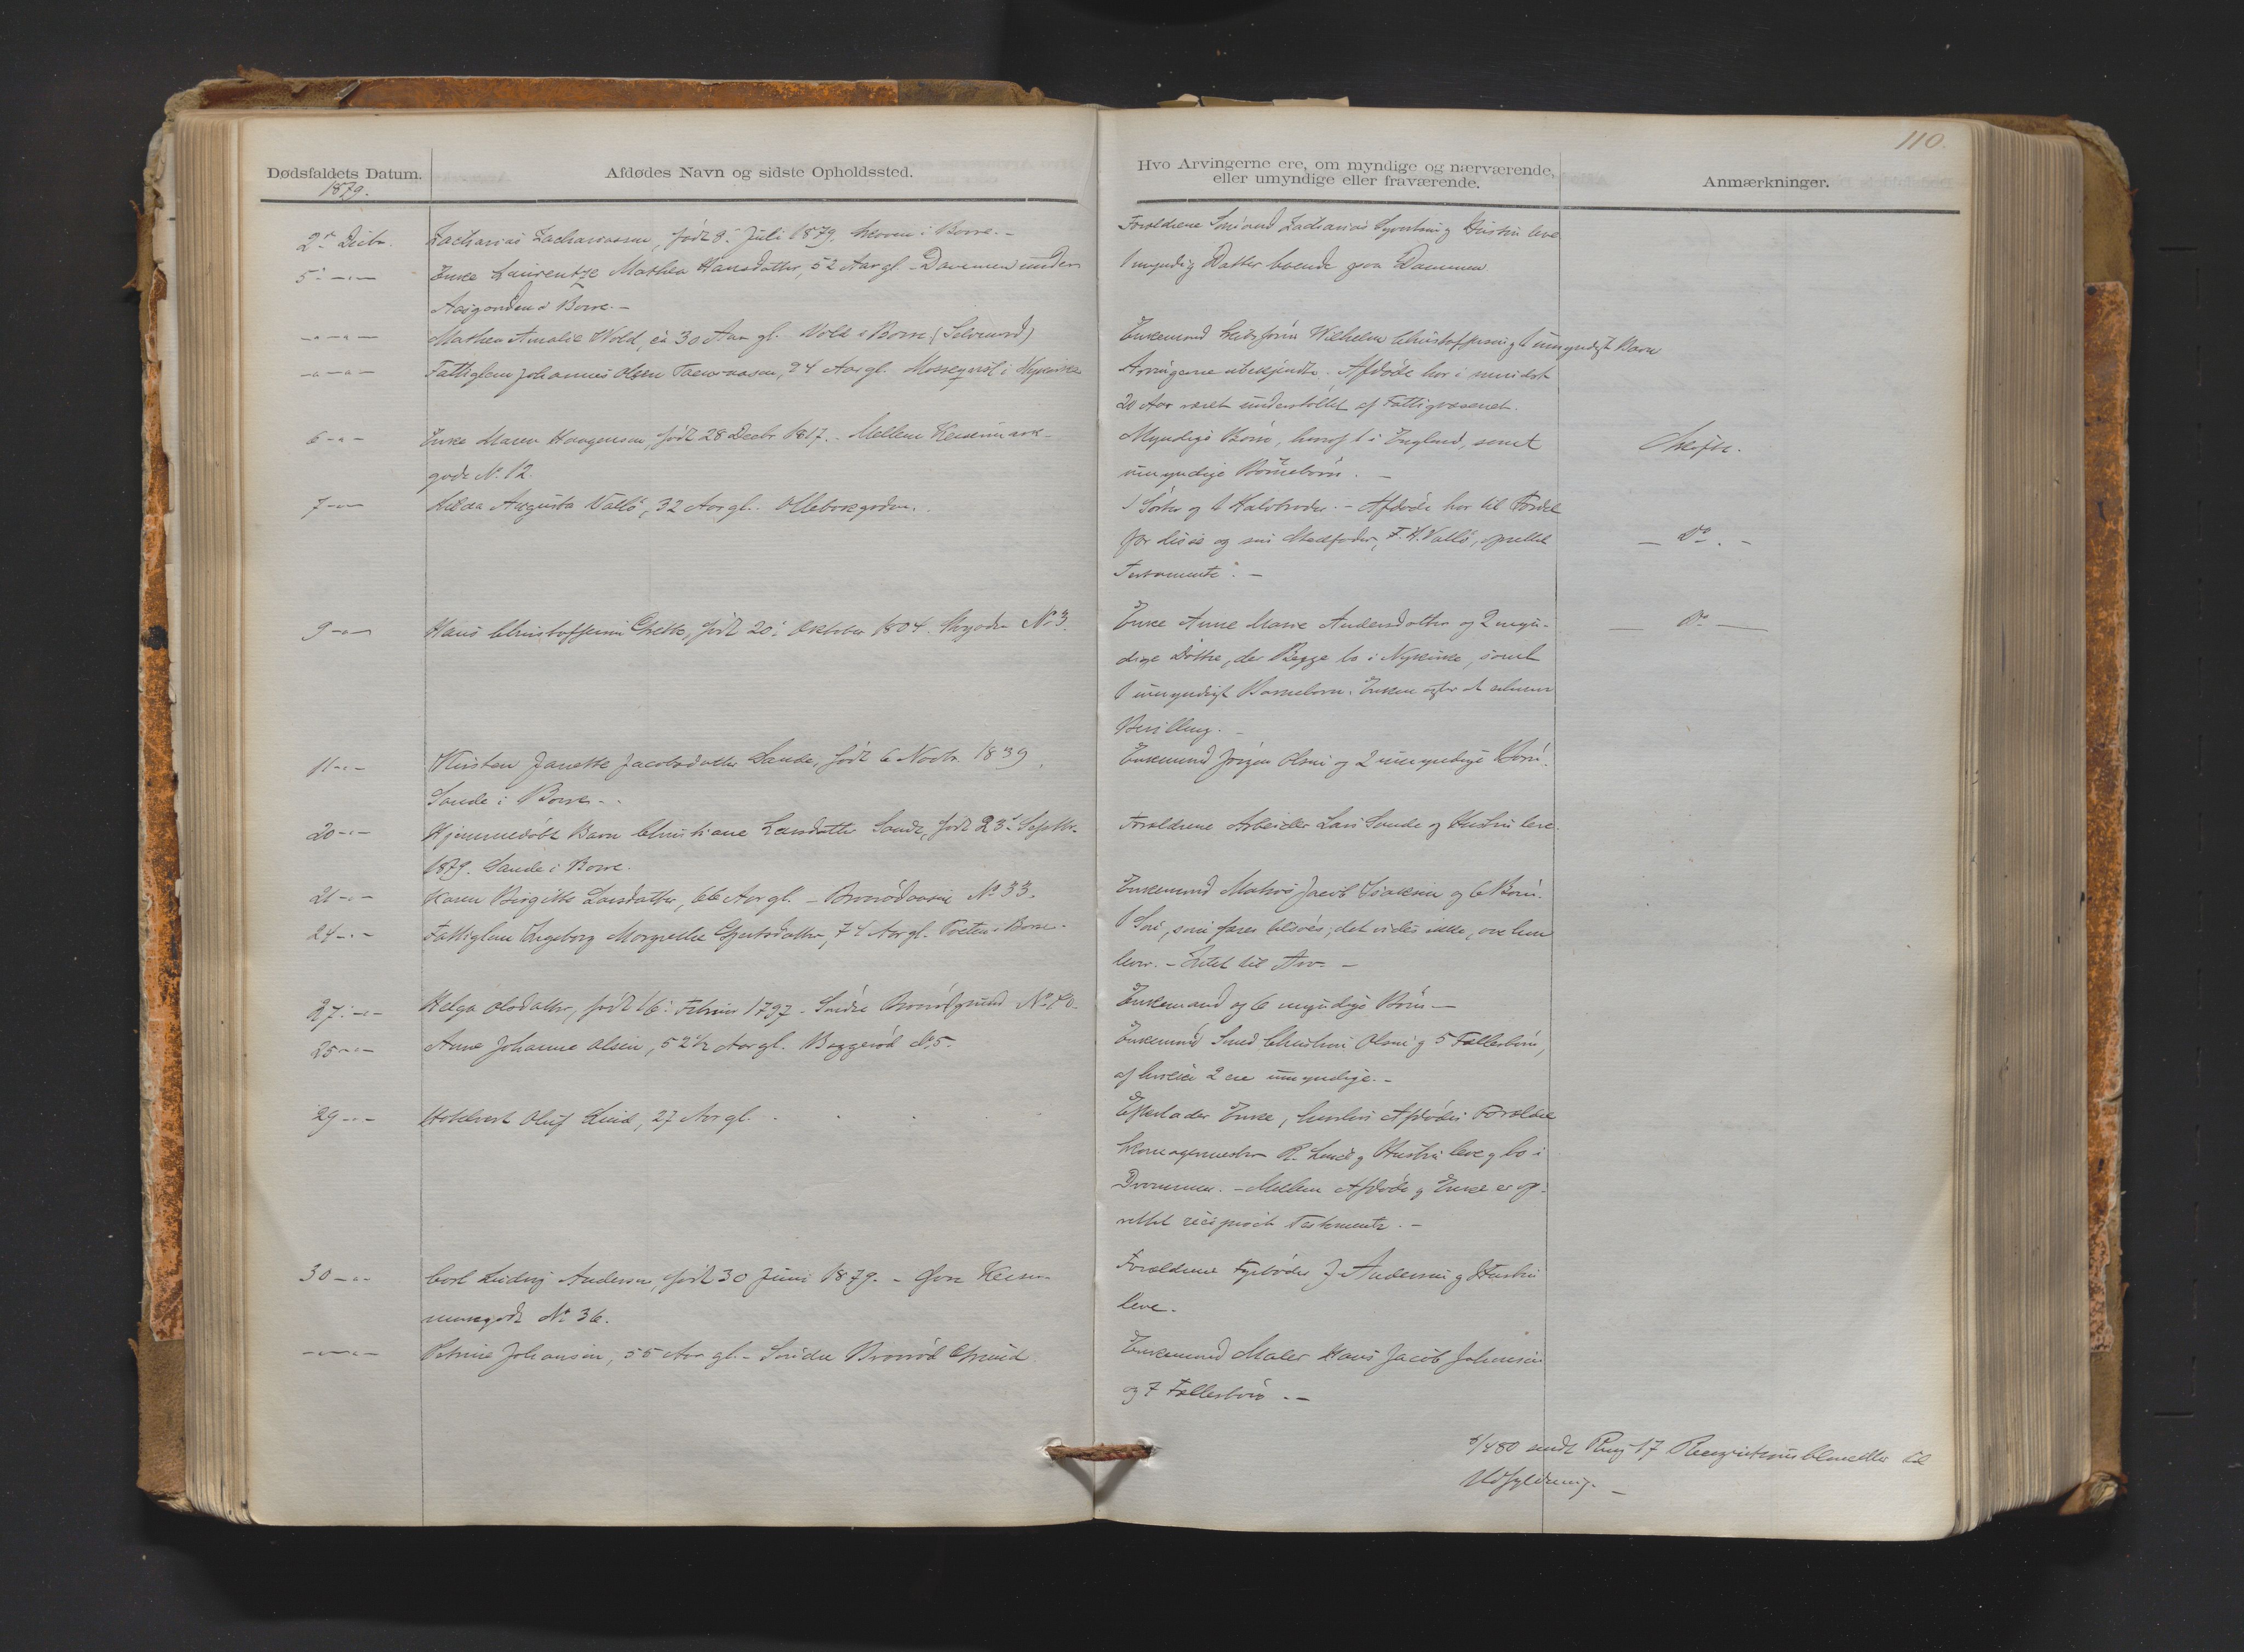 110.
Dødsfaldets Datum.
1879.
Afdødes Navn og sidste Opholdssted.
Hvo Arvingerne ere, om myndige og nærværende,
eller umyndige eller fraværende.
Anmærkninger.
2n Decbr.
Zacharias Zachariassen, født 8. Juli 1879. Skoven i Borre. -
Forældrene Smed Zacharias Syvertsen og Hustru leve
5 - " -
Enke Laurentze Mathea Hansdatter, 52 Aar gl. - Dammen under
Aasgaarden i Borre. -
1 myndig Datter boende paa Dammen
- " - " -
Mathea Amalie Wold, ca 30 Aar gl. Wold i Borre (Selvmord)
Enkemand Wilhelm Christoffersen og 1 umyndigt Barn
- " - " -
Fattiglem Johannes Olsen, 74 Aar gl. i Nykirke
Arvingerne ubekjendte. Afdøde har i mindst
20 Aar været understøttet af Fattigvæsenet.
6 - " -
Enke Maren Haagensen, født 28 Decbr 1817. - Mellem Keisemark-
gade No 12.
Myndige Børn, hvoraf 1 i England, samt
umyndige Børnebørn. -
Skifte.
7 - " -
Hilda Augusta Vallö, 32 Aar gl. Olleborggaden.
1 Søster og 1 Halvbroder. - Afdøde har til Fordel
for disse og sin Stedfader, F. H. Vallö, oprettet
Testamente. -
- Do. -
9 - " -
Hans Christoffersen Grette, født 20. Oktober 1804. No 3.
Enke Anne Marie Andersdatter og 2 myn-
dige Døttre, der Begge bo i Nykirke, samt
1 umyndigt Barnebarn. Enken agter at erhverve
Bevilling. -
- Do -
11 - " -
Kirsten Janette Jacobsdatter Sande, født 6 Novbr 1839.
Sande i Borre. -
Enkemand Jørgen Olsen og 2 umyndige Børn.
20 - " -
Hjemmedøbt Barn Christiane Larsdatter Sande, født 23. Septbr.
1879. Sande i Borre.
Forældrene Arbeider Lars Sande og Hustru leve.
21 - " -
Karen Birgitte Larsdatter, 66 Aar gl. - Brorødaasen No 33.
Enkemand Matros Jacob Isaksen og 6 Børn.
24 - " -
Fattiglem Ingeborg Margrethe Gjertsdatter, 74 Aar gl. i Borre.
1 Søn, som fares tilsøes, det vides ikke, om han
lever. - Intet til Arv. -
27 - " -
Helga Olsdatter, født 16. Februar 1797. - Søndre Brorødgrund No
Enkemand og 6 myndige Børn -
25 - " -
Anne Johanne Olsen, 52 1/2 Aar gl. Baggerød No 5.
Enkemand Smed Christian Olsen og 5 Fællesbørn,
af hvilke 2 ere umyndige. -
29 - " -
Oluf Lund, 27 Aar gl.
Efterlader Enke, hvorhos Afdødes Forældre
Skomagermester R. Lund og Hustru leve og bo i
Drammen. - Mellem Afdøde og Enke er op-
rettet reciproct Testamente. -
30 - " -
Carl Ludvig Andersen, født 30 Juni 1879. - Øvre Keise-
markgade No 36.
Forældrene Fyrbøder J. Andersen og Hustru
leve.
- " - " -
Petrine Johansen, 55 Aar gl. - Søndre Brorød Grund
Enkemand Maler Hans Jacob Johansen
og 7 Fællesbørn. -
6/1 80 sendt 17 til
Udfyldning. -